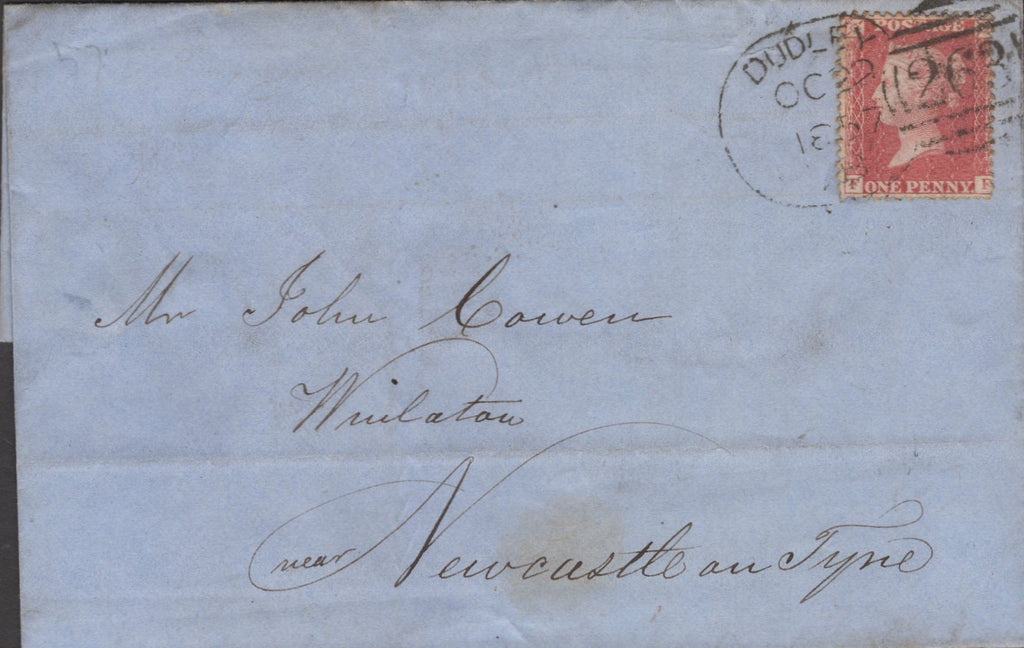 57
DUDLEY
OC 29
1857
POSTAGE
ONE PENNY
Mr John Cowen
Winlaton
near Newcastle on Tyne